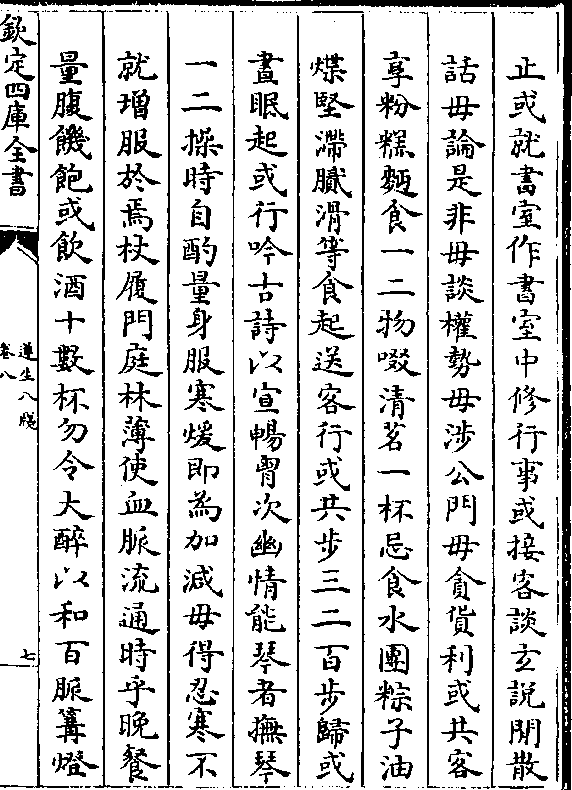 止或就書室作書室中修行事或接客談玄說閒散
話毋論是非毋談權勢毋涉公門毋貪貨利或共客
享粉糕麪食一二物啜清茗一杯忌食水團粽子油
煠堅滯膩滑等食起送客行或共步三二百步歸或
晝眠起或行吟古詩以宣暢胷次幽情能琴者撫琴
一二操時自酌量身服寒煖即為加減毋得忍寒不
就增服於焉杖履門庭林薄使血脈流通時乎晚餐
量腹饑飽或飲酒十數杯勿令大醉以和百脈篝燈
欽定四庫全書
遵生八牋
卷八
七